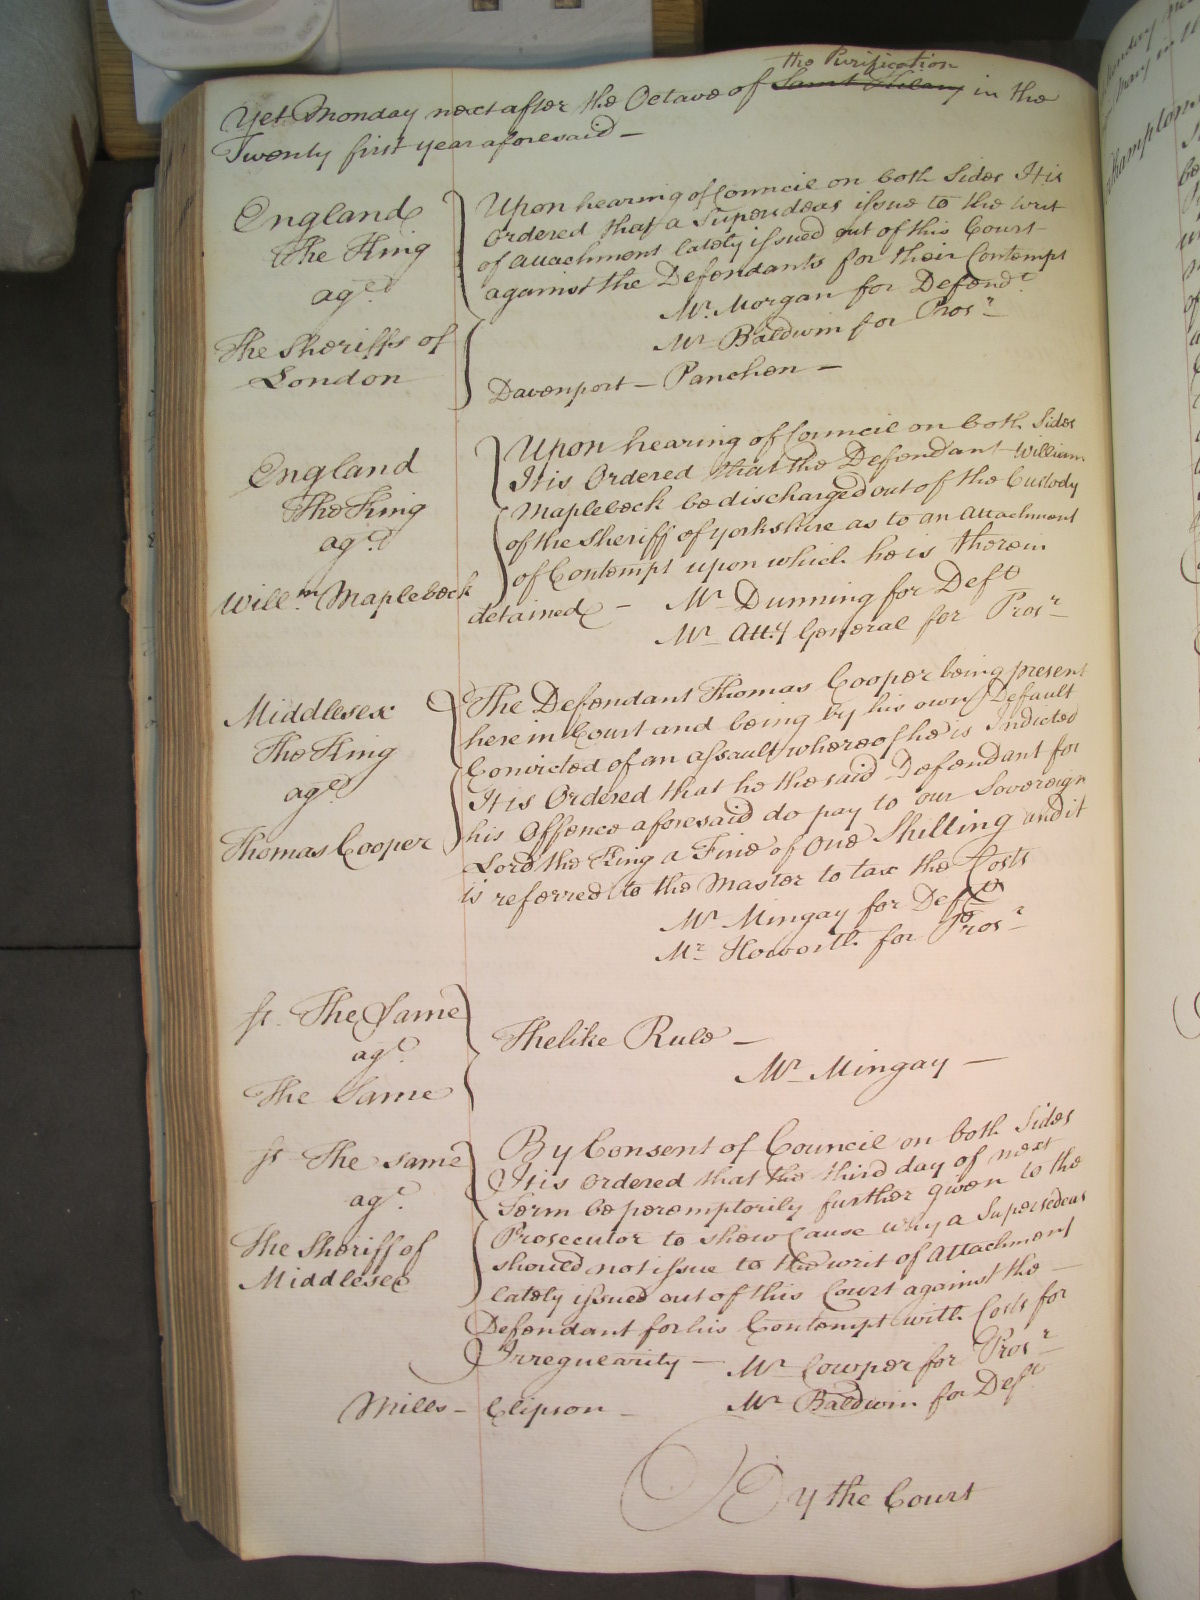 the Purification
Yet Monday next after the Octave of Saint Hilary in the
Twenty first year aforesaid —
England
The King
agt
The Sheriffs of
London
Upon hearing of Council on both Sides It is
Ordered that a Supersedeas issue to the writ
of Attachment lately issued out of this Court
against the Defendants for their Contempt
Mr. Morgan for Defendt
Mr Baldwin for Prosr
Davenport — Panchen —
England
The King
agt
Willm Maplebeck
Upon hearing of Council on both Sides
It is Ordered that the Defendant William
Maplebeck be discharged out of the Custody
of the Sheriff of Yorkshire as to an Attachment
of Contempt upon which he is therein
detained — Mr Dunning for Deft
Mr Atty General for Prosr
Middlesex
The King
agt
Thomas Cooper
The Defendant Thomas Cooper being present
here in Court and being by his own Default
Convicted of an Assault whereof he is Indicted
It is Ordered that he the said Defendant for
his Offence aforesaid do pay to our Sovereign
Lord the King a Fine of One Shilling and it
is referred to the Master to tax the Costs
Mr Mingay for Deft
Mr Howorth for Prosr
ss. The Same
agt
The Same
The like Rule —
Mr Mingay —
ss The same
agt
The Sheriff of
Middlesex
By Consent of Council on both Sides
It is ordered that the third day of next
Term be peremptorily further given to the
Prosecutor to shew Cause why a Supersedeas
should not issue to the writ of Attachment
lately issued out of this Court against the —
Defendant for his Contempt with Costs for
Irregularity — Mr Cowper for Prosr
Mills — Clipson — Mr Baldwin for Deft
By the Court